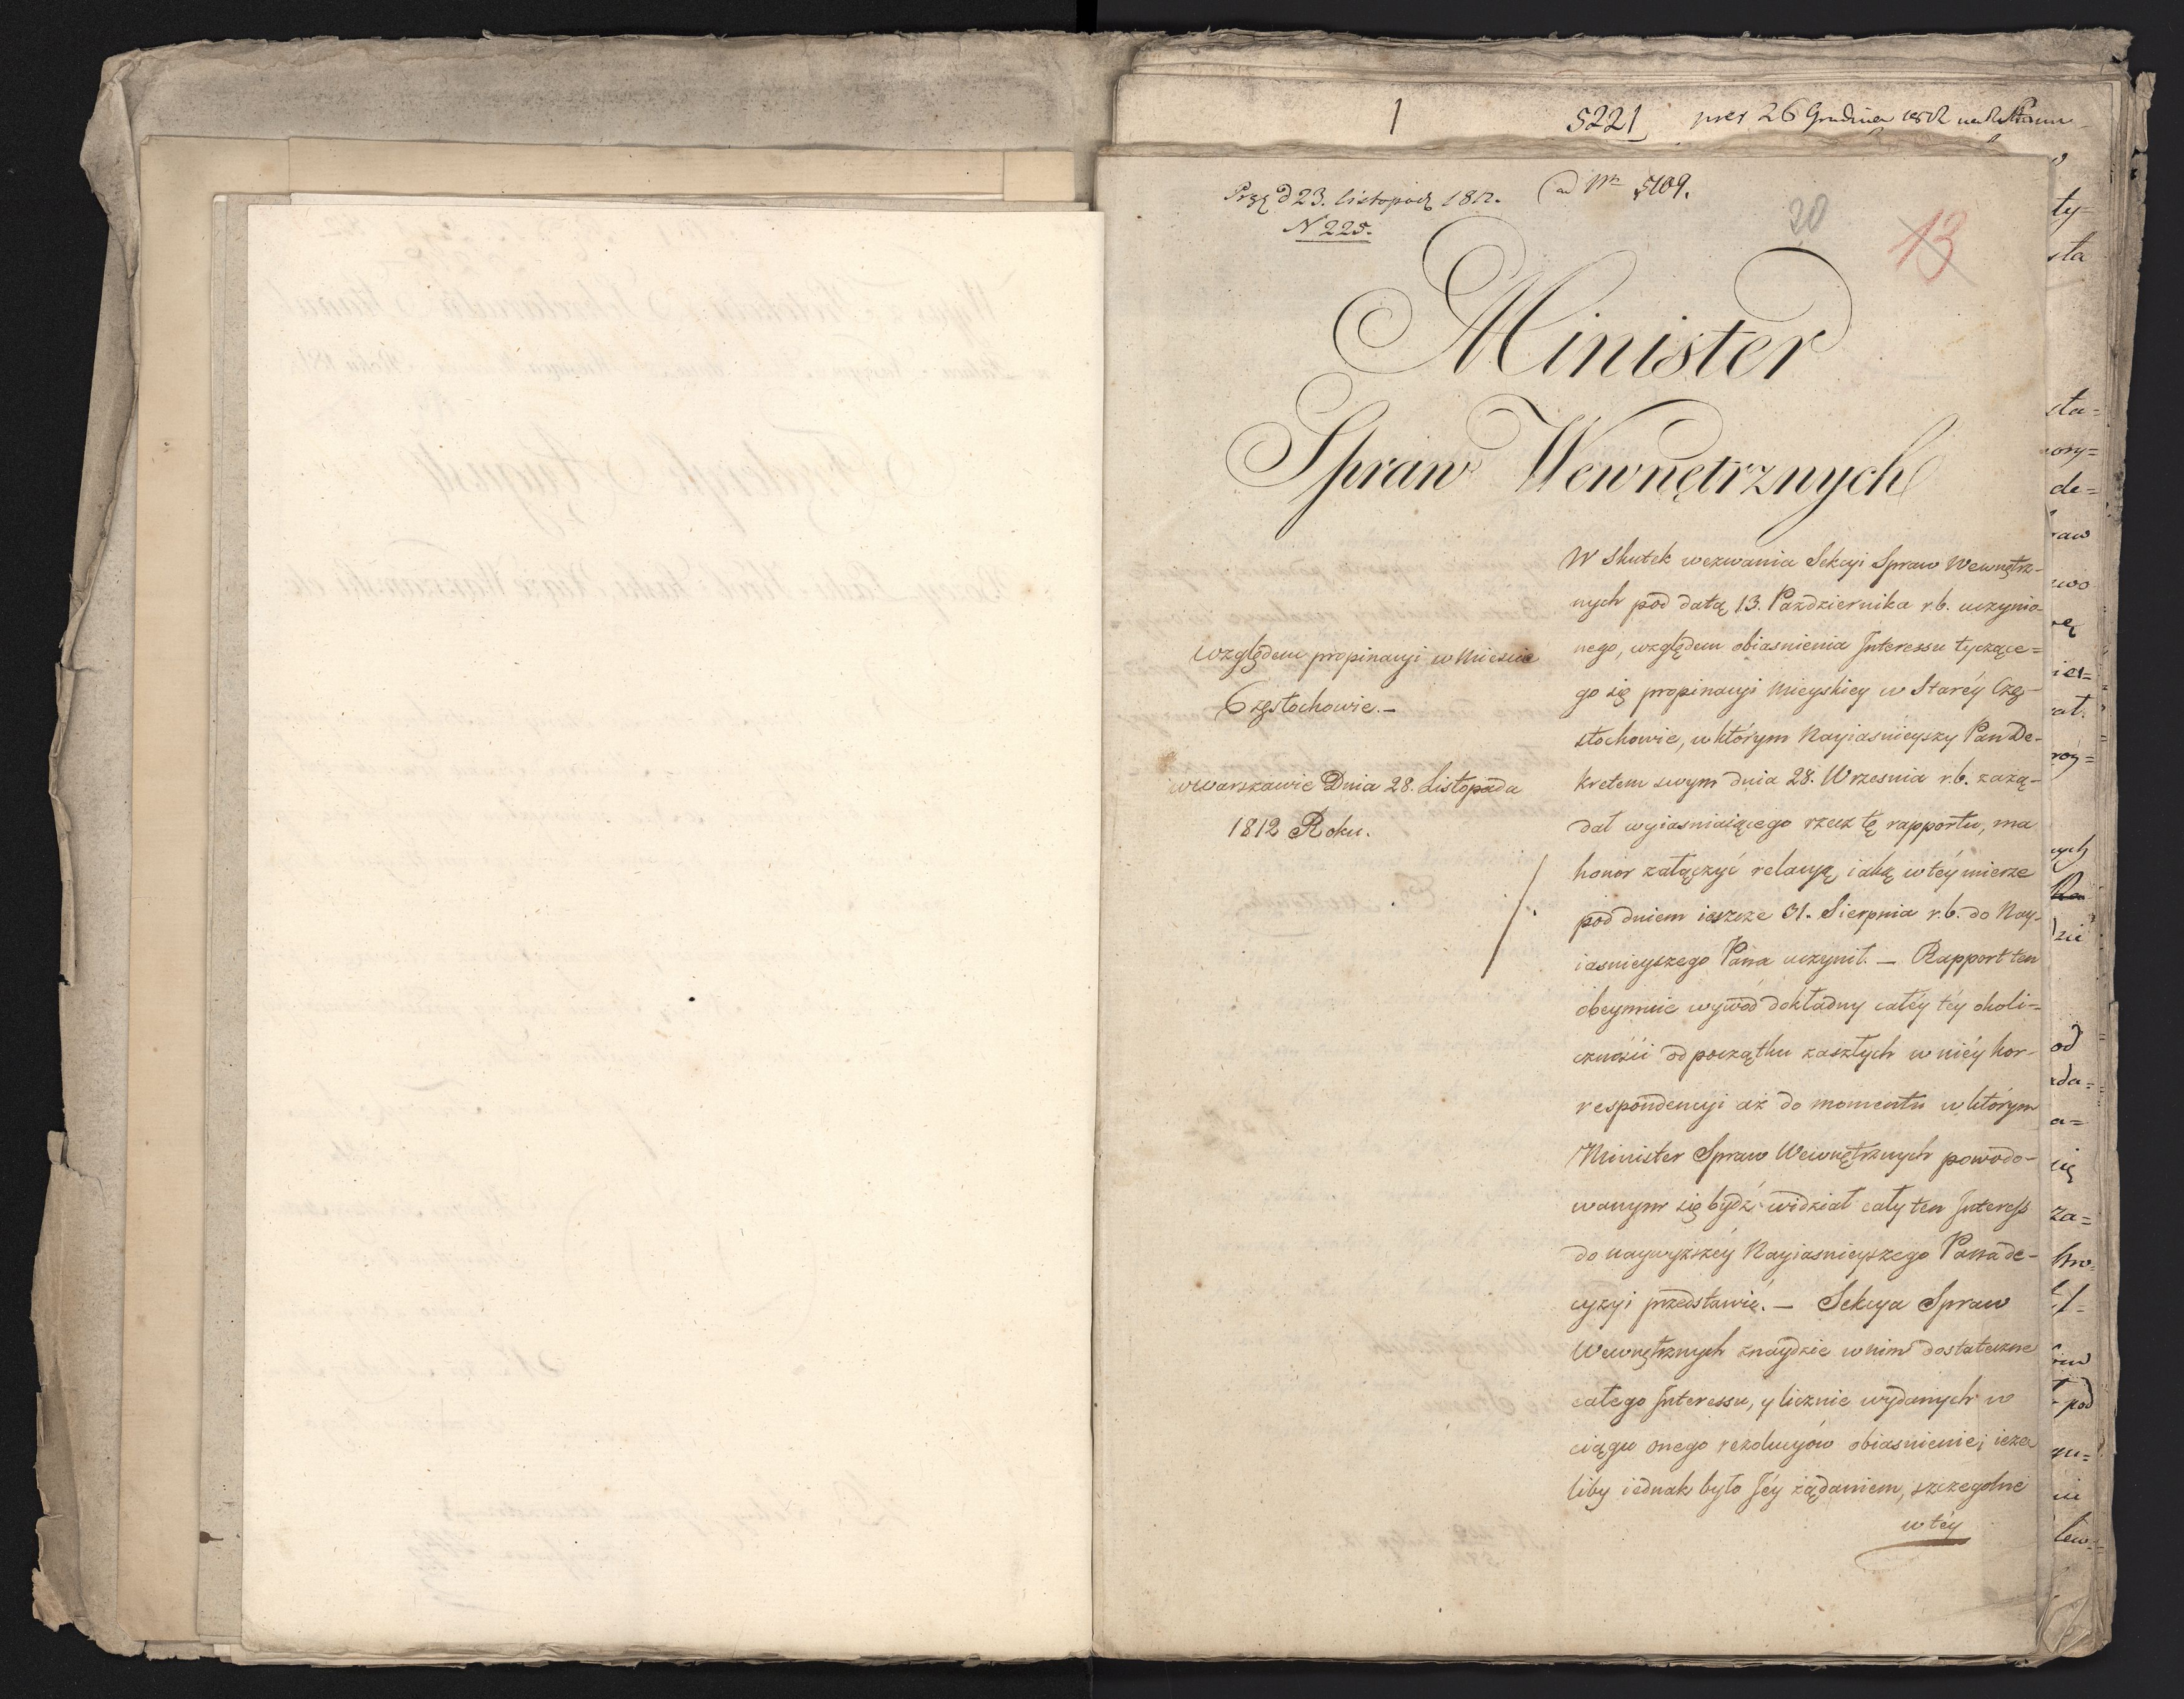 1 5221 26 Grudnia 1812
d 23. listopad 1812. ad Nr 5109.
N 225.
20
13
Minister
Spraw Wewnętrznych
względem propinacyi w Mieście
Częstochowie. –
w Warszawie Dnia 28. Listopada
1812 Roku.
W Skutek wezwania Sekcyi Spraw Wewnętrz-
nych pod datą 13. Pazdziernika r.b. uczynio-
nego, względem obiasnienia Interessu tyczące=
go się propinacyi Mieyskiey w Staréy Czę-
stochowie, w którym Nayiasnieyszy Pan De-
kretem swym dnia 28. Wrzesnia r.b. zażą-
dał wyiasniaiącego rzecz tę rapportu, ma
honor załączyć relacyą, iaką w téy mierze
pod dniem ieszcze 31. Sierpnia r.b. do Nay-
iasnieyszego Pana uczynił. – Rapport ten
obeymuie wywód dokładny całéy téy okoli=
czności od początku zaszłych w niéy kor-
respondencyi aż do momentu w którym
Minister Spraw Wewnętrznych powodo-
wanym się bydź widział cały ten Interess
do naywyższéy Nayiasnieyszego Pana de-
cyzyi przedstawić. – Sekcya Spraw
Wewnętrznych znaydzie w nim dostateczne
całego Interessu, y licznie wydanych w
ciągu onego rezolucyów obiasnienie; ieże
liby iednak było Jéy żądaniem, szczegolne
w téy